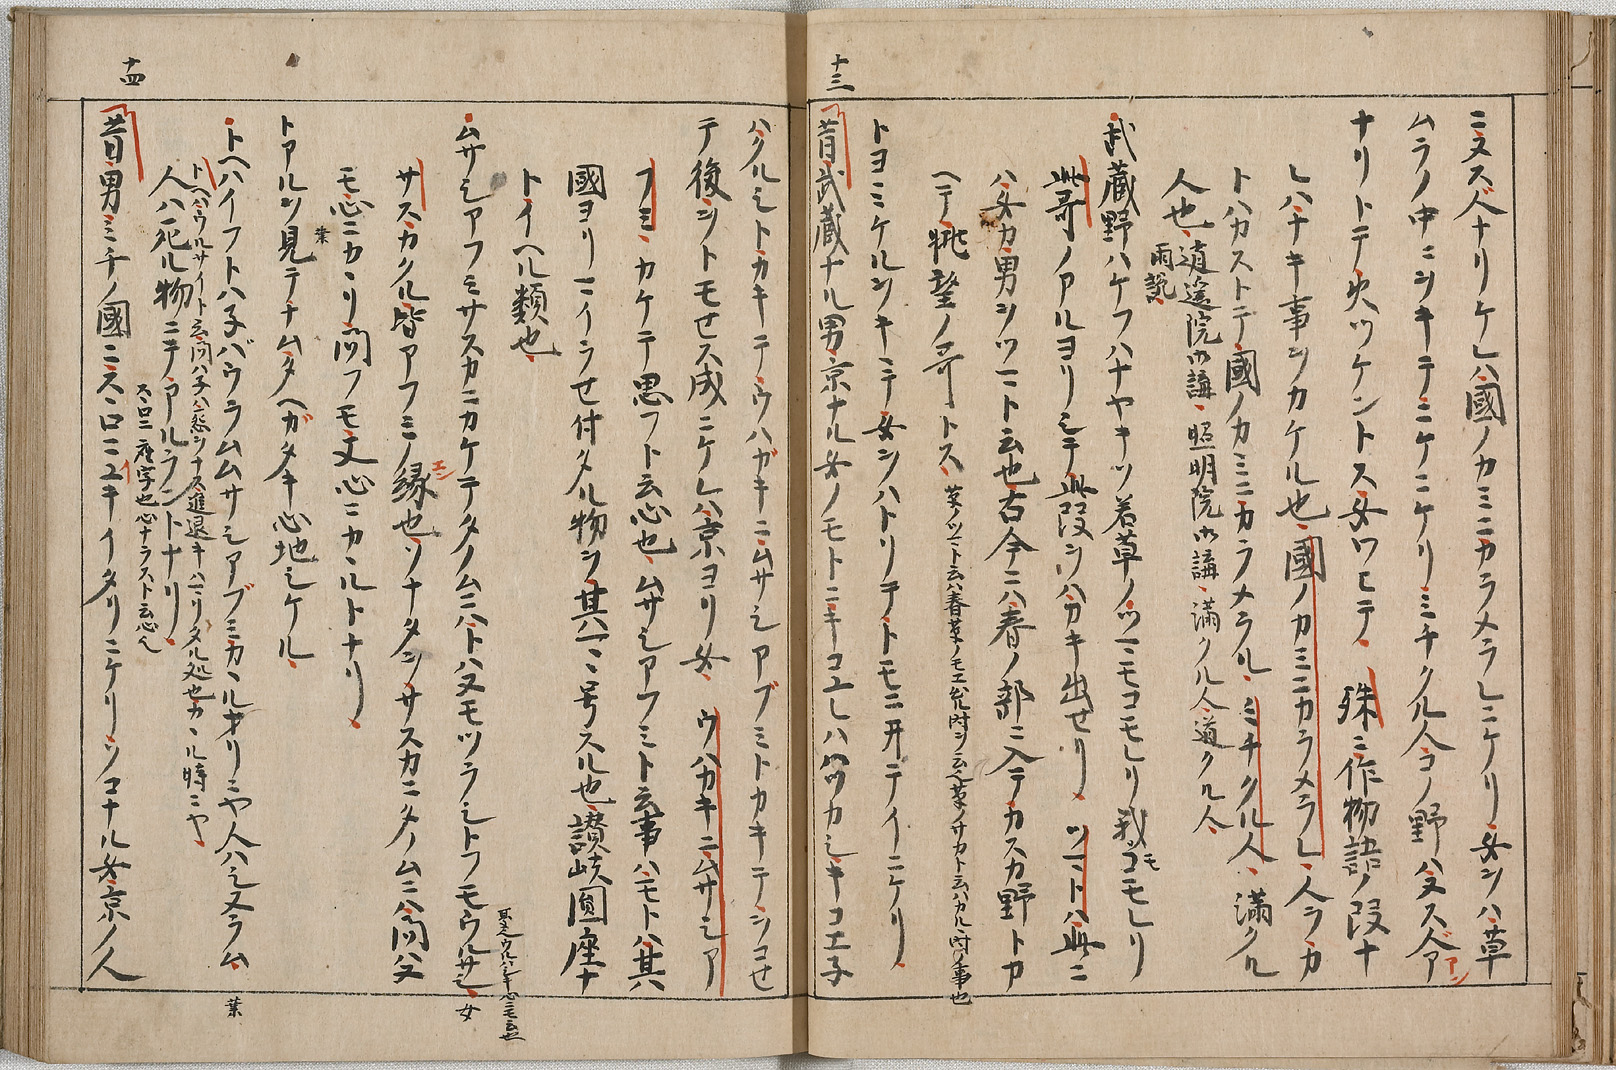 ニヌス人ナリケレハ國ノカミニカラメラレニケリ女ヲハ草
ムラノ中ニヲキテニケニケリミチクル人コノ野ハヌス人ア
ナリトテ火ツケントス女ワヒテ 殊ニ作物語ノ段ナ
レハナキ事ヲカケル也國ノカミニカラメラレ人ヲカ
トハカストテ國ノカミニカラメラル ミチクル人 満クル
人也 逍遥院御講 照明院御講 満クル人 道クル人
両説
武蔵野ハケフハナヤキソ若草ノツマモコモレリ我モコモレリ
此哥ノアルヨリシテ此段ヲハカキ出セリ ツマトハ此ニ
ハ女カ男ヲツマト云也古今ニハ春ノ部ニ入テカスカ野トカ
ヘテ眺望ノ哥トス
トヨミケルヲキキテ女ヲハトリテトモニ井テイニケリ
十三
昔武蔵ナル男京ナル女ノモトニキコユレハハツカシキコエネ
ハクルシトカキテウハガキニムサシアブミトカキテヲコセ
テ後ヲトモセス成ニケレハ京ヨリ女 ウハカキニムサシア
フミ カケテ思フト云心也 ムサシアフミト云事ハモトハ其
國ヨリマイラセ付タル物ヲ其マヽ号スル也 讃岐圓座ナ
トイヘル類也
ムサシアフミサスカニカケテタノムニハトハヌモツラシトフモウルサシ 女
サスカクル皆アフミノ縁也ソナタヲサスカニタノムニハ問ハヌ
モ心ニカヽリ問フモ又心ニカヽルトナリ
トアルヲ見テナムタヘガタキ心地シケル
トヘハイフトハネバウラムムサシアブミカヽルオリニヤ人ハシヌラム
葉
人ハ死ル物ニテアルラントナリ
十四
昔男ミチノ國ニスヽロニユキイタリニケリソコナル女京ノ人